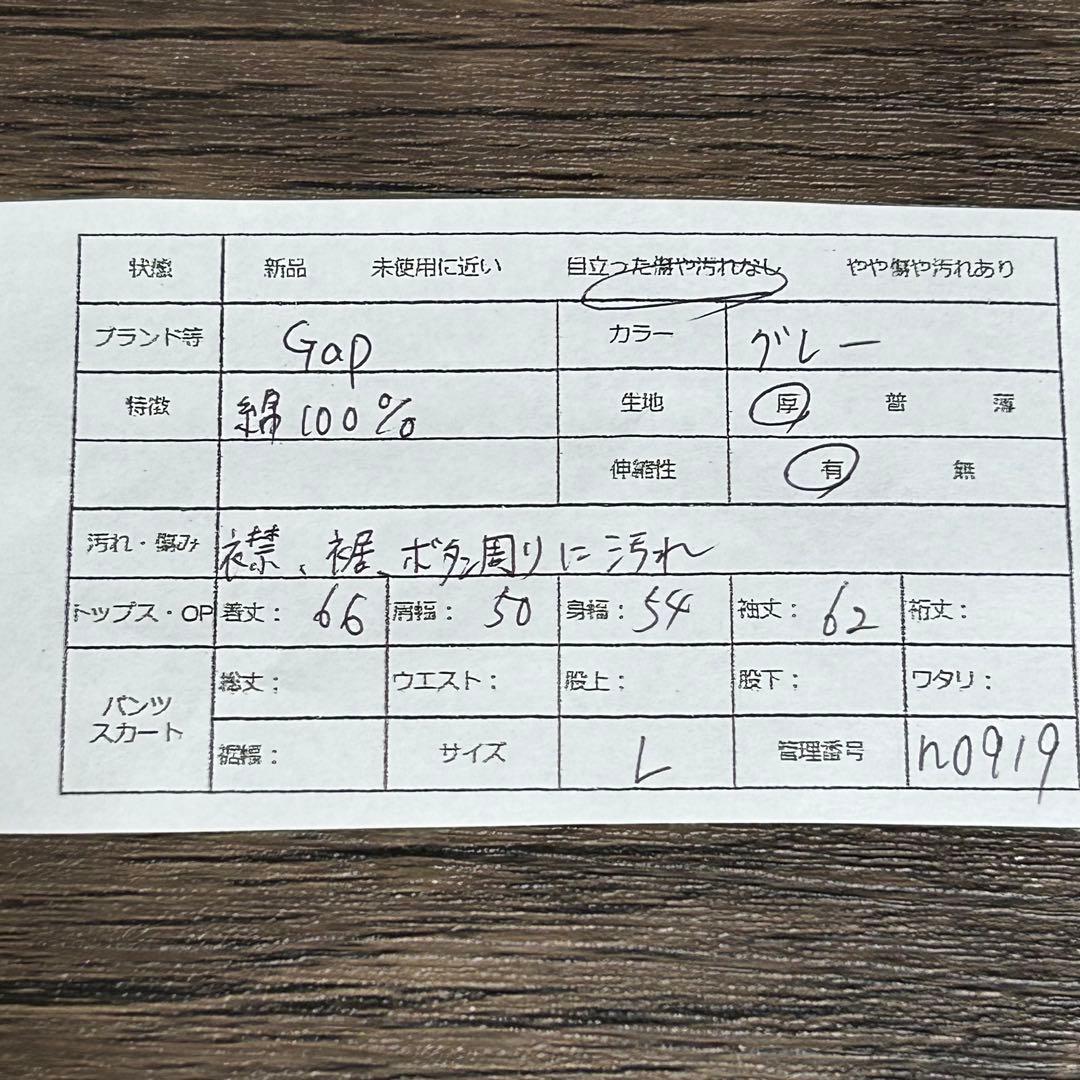 状態 新品 未使用に近い 目立った傷や汚れなし やや傷や汚れあり
ブランド等 Gap カラー グレー
特徴 綿100% 生地 厚 普 薄
伸縮性 有 無
汚れ・傷み 衣襟、裾、ボタン周りに汚れ
トップス・OP 着丈: 66 肩幅: 50 身幅: 54 袖丈: 62 裄丈:
パンツ スカート 総丈: ウエスト: 股上: 股下: ワタリ:
裾幅: サイズ L 管理番号 n0919